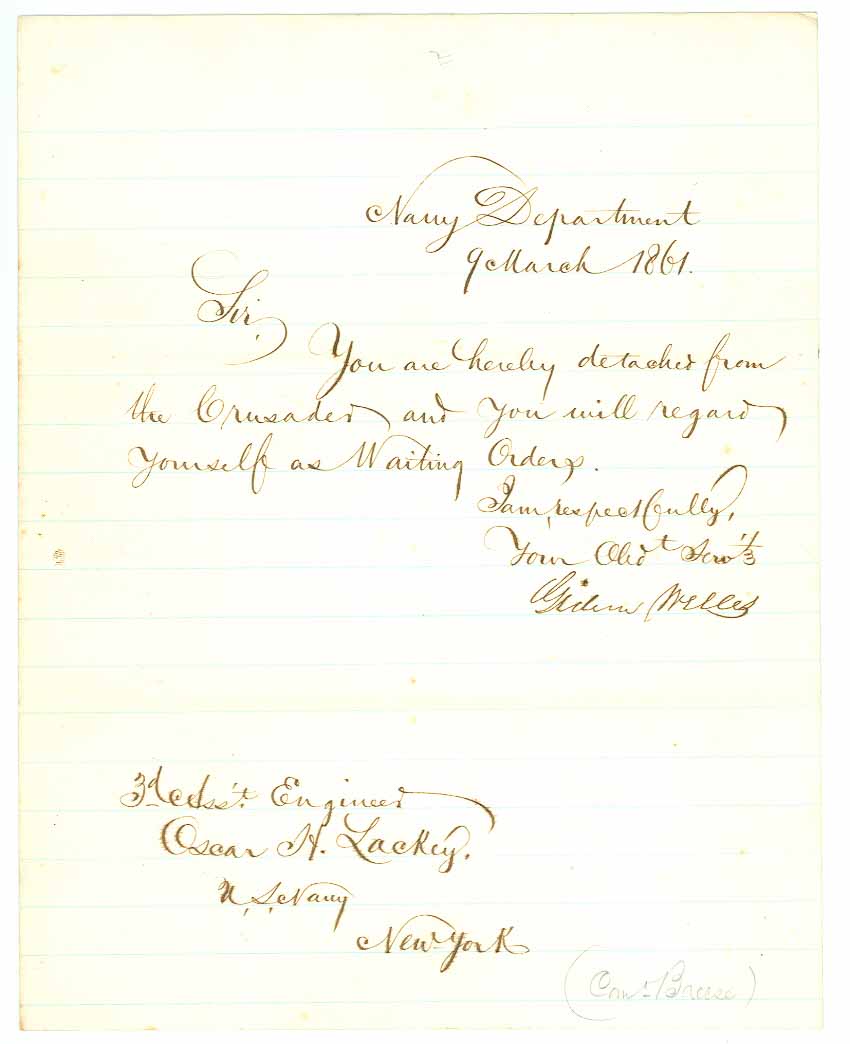 Navy Department
9 March 1861.
Sir,
You are hereby detached from
the Crusader and you will regard
yourself as Waiting Orders.
I am, respectfully,
Your Obdt Servt
Gideon Welles
3d Ass't. Engineer
Oscar H. Lackey,
U.S. Navy
New York
(Comr Breese)